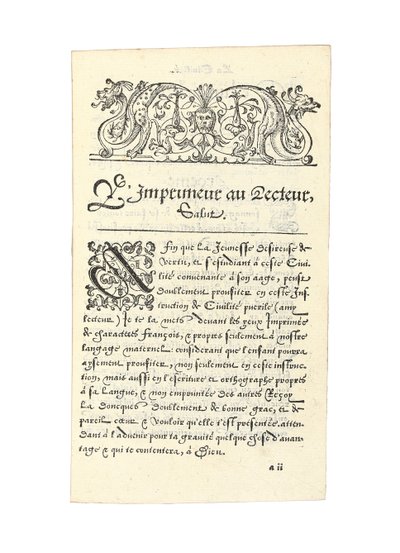 L'Imprimeur au Lecteur,
Salut.
Afin que la Jeunesse desireuse de
vertu, et s'estudiant à ceste Civi-
lité convenante à son aage, peust
doublement prouffiter en ceste Ins-
truction de Civilité puerile (amy
lecteur) Ie te la mets devant les yeux Imprimée
de characteres François, & propres seulement à nostre
langage maternel: considerant que l'enfant pourra
aysement prouffiter, non seulement en ceste instruc-
tion, mais aussi en l'escriture et orthographe propres
à sa Langue, & non empruntée des autres Reçoy
La doncques doublement de bonne grac, et de
pareil cœur & vouloir qu'elle t'est presentée, atten-
dant à l'advenir pour ta gravité quelque chose d'avan-
tage & qui te contentera, à Dieu.
a ii